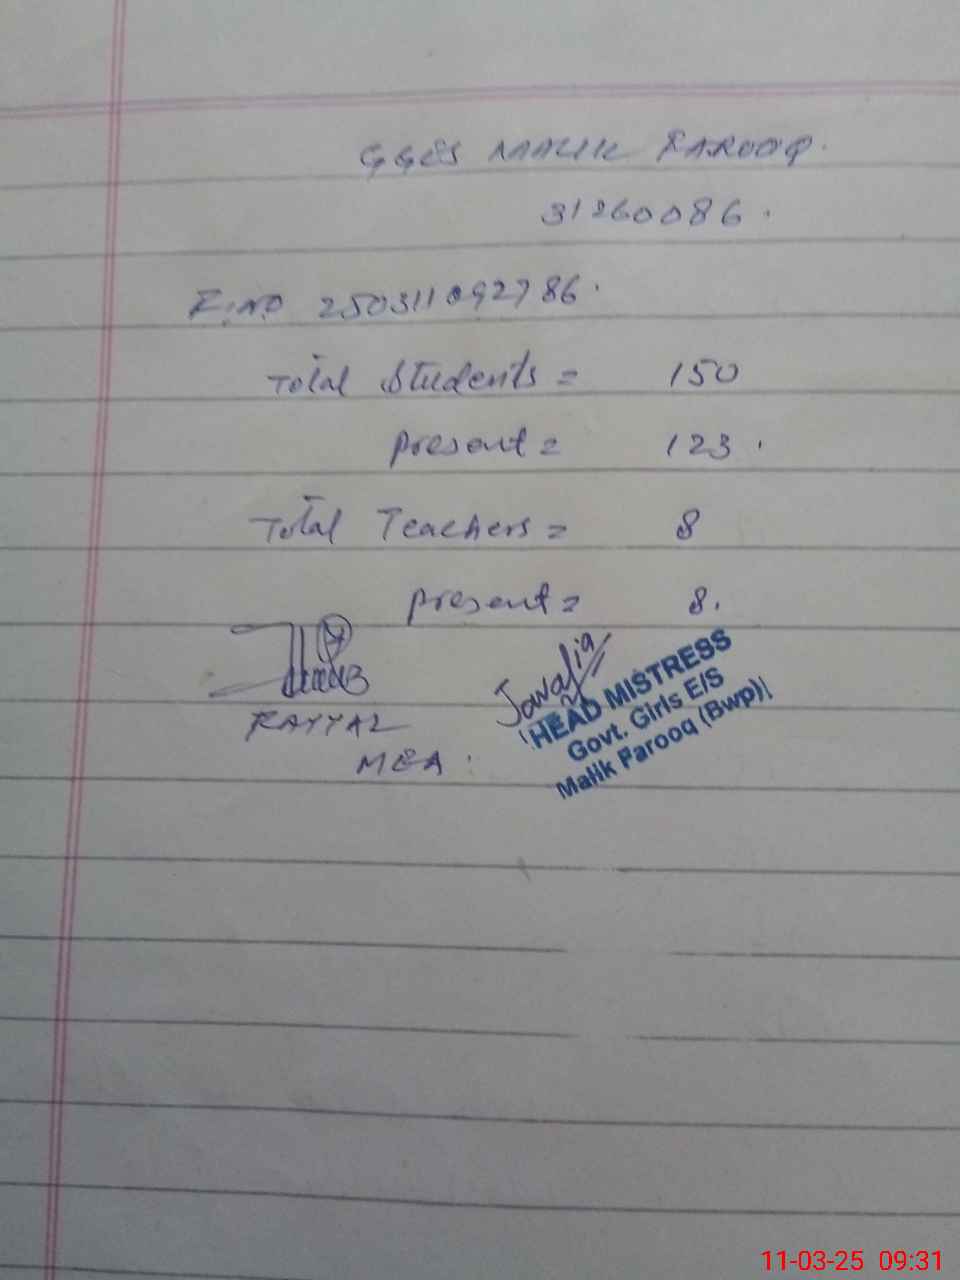 GGES MALIK FAROOQ.
31260086.
F.NO 250311092786.
Total Students = 150
Present = 123.
Total Teachers = 8
Present = 8.
HEAD MISTRESS
Govt. Girls E/S
Malik Farooq (Bwp)
MEA
11-03-25 09:31